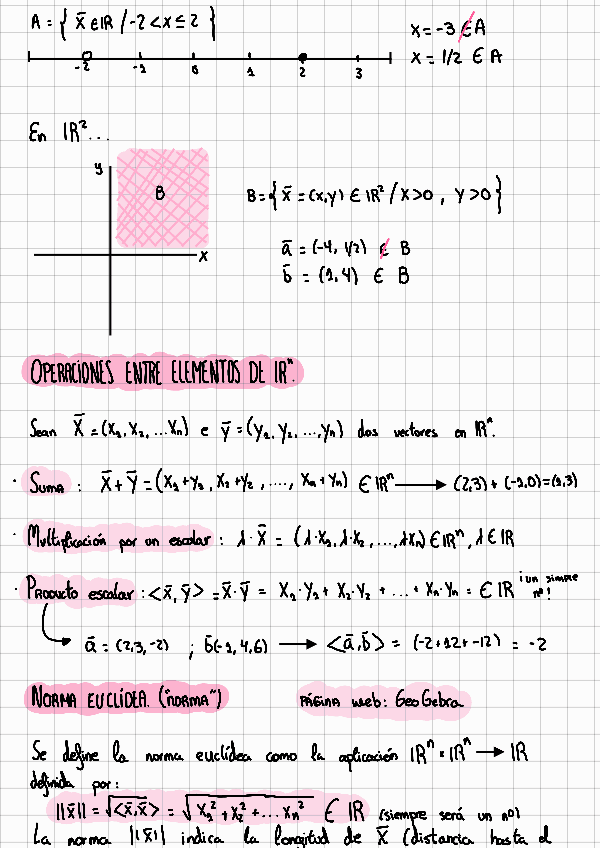 A = { x̄ ∈ IR / -2 < x ≤ 2 }
x = -3 ∉ A
x = 1/2 ∈ A
-2 -1 0 1 2 3
En IR²...
y
B
x
B = { x̄ = (x,y) ∈ IR² / X>0 , Y>0 }
ā = (-4, 1/2) ∉ B
b̄ = (1,4) ∈ B
OPERACIONES ENTRE ELEMENTOS DE IRⁿ.
Sean X̄ = (X₁, X₂, ...Xn) e ȳ = (Y₁, Y₂, ..., Yn) dos vectores en IRⁿ.
· SUMA : X̄ + Ȳ = (X₁+Y₁, X₂+Y₂, ...., Xn+Yn) ∈ IRⁿ → (2,3) + (-1,0) = (1,3)
· Multiplicación por un escalar : λ · X̄ = (λ·X₁, λ·X₂, ..., λXn) ∈ IRⁿ, λ ∈ IR
· PRODUCTO escalar : <x̄, ȳ> = x̄·ȳ = X₁·Y₁ + X₂·Y₂ + ... + Xn·Yn = ∈ IR ¡un simple nº!
ā = (2,3,-2) ; b̄(-1,4,6) → <ā,b̄> = (-2+12+-12) = -2
NORMA EUCLÍDEA. ("NORMA")
PÁGINA web: GeoGebra
Se define la norma euclídea como la aplicación IRⁿ × IRⁿ → IR
definida por:
||x̄|| = √<x̄,x̄> = √X₁² + X₂² + ... Xn² ∈ IR (siempre será un nº)
La norma ||x̄|| indica la longitud de x̄ (distancia hasta el